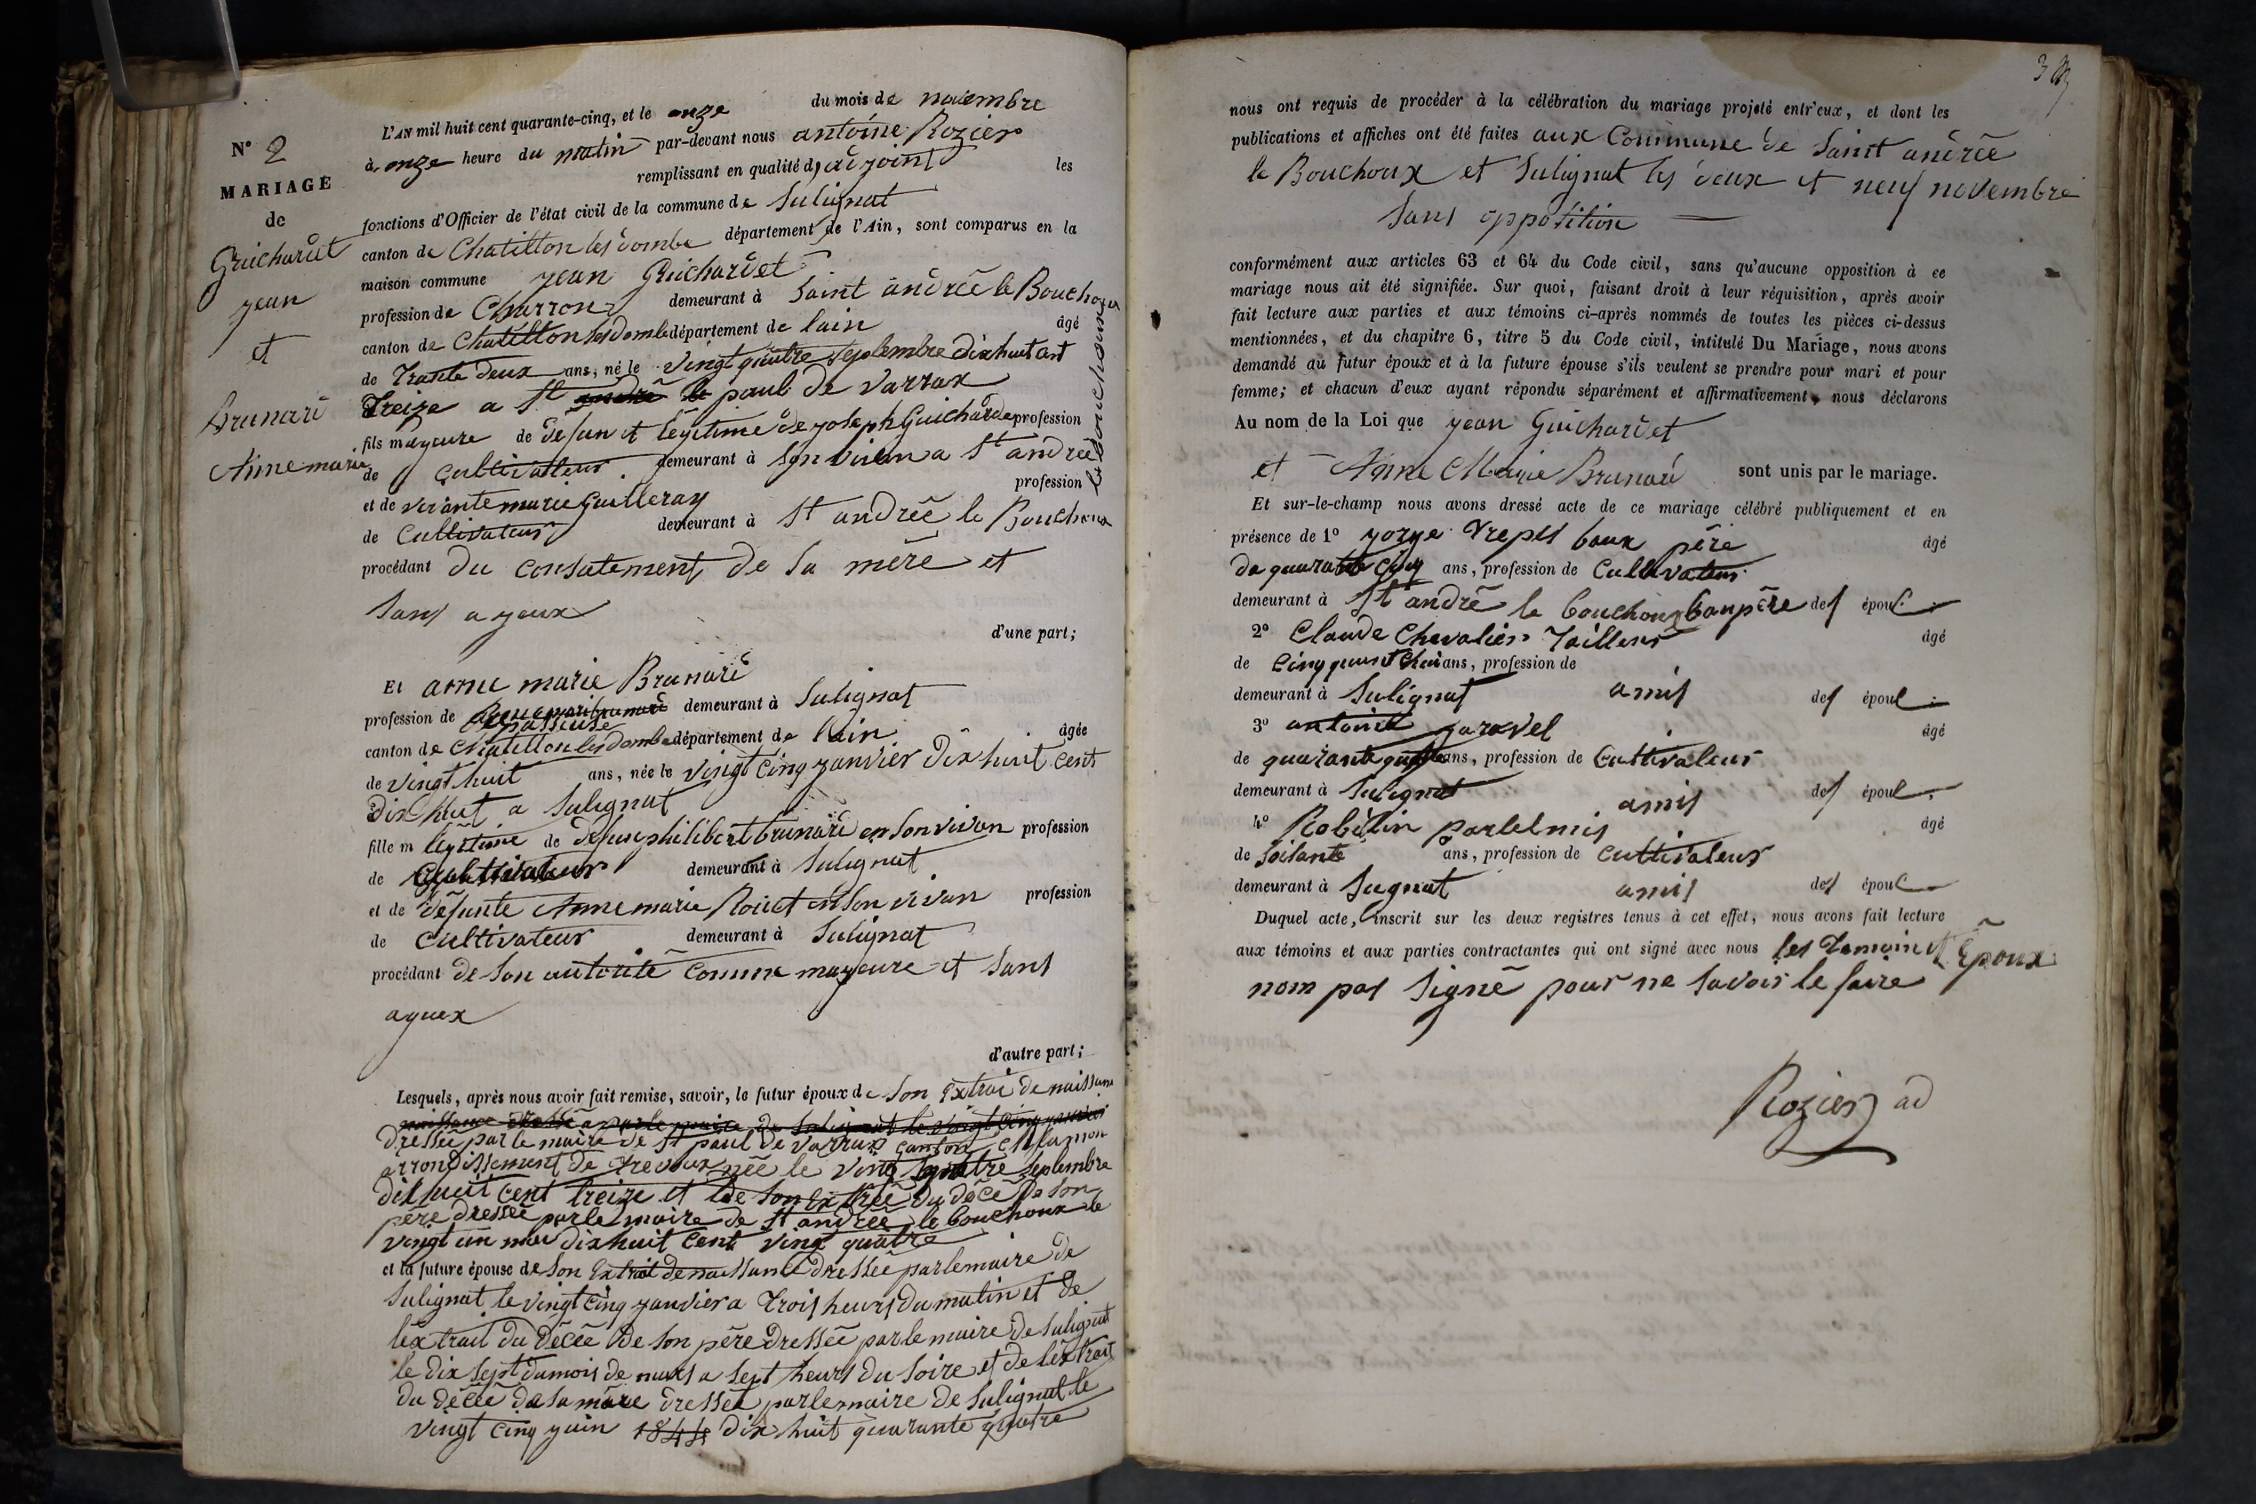 N° 2
MARIAGE
de
Guichardet
jean
et
Brunard
Anne marie
L'AN mil huit cent quarante-cinq, et le onze du mois de novembre
à onze heure du matin par-devant nous antoine Rozier
remplissant en qualité d'adjoint les
fonctions d'Officier de l'état civil de la commune de Sulignat
canton de Chatillon les dombe département de l'Ain, sont comparus en la
maison commune jean Guichardet
profession de Charron demeurant à Saint andrée le Bouchoux
canton de Chatillon les dombe département de lain âgé
de Trante deux ans, né le vingt quatre septembre dix huit cent
Treize a St andré le paul de varrax
fils mayeure de defun et legitime de joseph Guichardet profession
de cultivateur demeurant à son vivan a St andrée le bouchoux
et de vivante marie Guilleray profession
de Cultivateur demeurant à St andrée le Bouchoux
procédant du consatement de sa mère et
sans ayeux
d'une part;
Et anne marie Brunard
profession de Repasseuse demeurant à Sulignat
canton de Chatillon les dombe département de lain âgée
de vingt huit ans, née le vingt cinq janvier dix huit cent
dix huit a Sulignat
fille m legitime de défun philibert brunard en son vivan profession
de cultivateur demeurant à Sulignat
et de défunte Anne marie Rouet en son vivan profession
de cultivateur demeurant à Sulignat
procédant de son autorité comme mayeure et sans
ayeux
d'autre part;
Lesquels, après nous avoir fait remise, savoir, le futur époux de son Extrai de naissance
naissance dressé par le maire de Sulignat le vingt cinq janvier
dressée par le maire de St paul de varrax canton
arrondissement de trevoux née le vingt quatre septembre
dix huit cent treize et de son extrai du décé de son
père dressée par le maire de St andrée le bouchoux le
vingt un mai dix huit cent vingt quatre
et la future épouse de son Extrait de naissance dressée par le maire de
Sulignat le vingt cinq janvier a trois heurs du matin et de
lextrait du décée de son père dressée par le maire de Sulignat
le dix sept du mois de mars a sept heurs du soire et de lextrait
du décée de sa mère dressée par le maire de Sulignat le
vingt cinq juin 1844 dix huit quarante quatre
nous ont requis de procéder à la célébration du mariage projeté entr'eux, et dont les
publications et affiches ont été faites aux Commune de Saint andrée
le Bouchoux et Sulignat les deux et neuf novembre
sans opposition
conformément aux articles 63 et 64 du Code civil, sans qu'aucune opposition à ce
mariage nous ait été signifiée. Sur quoi, faisant droit à leur réquisition, après avoir
fait lecture aux parties et aux témoins ci-après nommés de toutes les pièces ci-dessus
mentionnées, et du chapitre 6, titre 5 du Code civil, intitulé Du Mariage, nous avons
demandé au futur époux et à la future épouse s'ils veulent se prendre pour mari et pour
femme; et chacun d'eux ayant répondu séparément et affirmativement, nous déclarons
Au nom de la Loi que jean Guichardet
et Anne Marie Brunard sont unis par le mariage.
Et sur-le-champ nous avons dressé acte de ce mariage célébré publiquement et en
présence de 1° jorge Trepst baux père âgé
de quarante cinq ans, profession de Cultivateur
demeurant à St andré le bouchoux baupère des époux
2° Claude Chevalier Tailleur âgé
de cinquant ans, profession de
demeurant à Sulignat amis des époux
3° antoine âgé
de quarante quatre ans, profession de Cultivateur
demeurant à Sulignat amis des époux
4° Robelin âgé
de soisante ans, profession de cultivateur
demeurant à Sugnat amis des époux
Duquel acte, inscrit sur les deux registres tenus à cet effet, nous avons fait lecture
aux témoins et aux parties contractantes qui ont signé avec nous les Temoin et Epoux
nom pas signé pour ne savoir le faire
Rozier ad